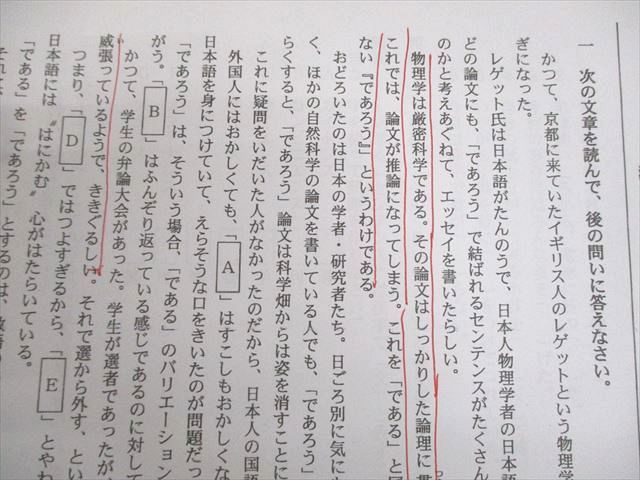 一　次の文章を読んで、後の問いに答えなさい。
かつて、京都に来ていたイギリス人のレゲットという物理学
ぎになった。
レゲット氏は日本語がたんのうで、日本人物理学者の日本語
どの論文にも、「であろう」で結ばれるセンテンスがたくさん
のかと考えあぐねて、エッセイを書いたらしい。
物理学は厳密科学である。その論文はしっかりした論理に貫
これでは、論文が推論になってしまう。これを「である」と
ない『であろう』」というわけである。
おどろいたのは日本の学者・研究者たち。日ごろ別に気に
く、ほかの自然科学の論文を書いている人でも、「であろう」
らくすると、「であろう」論文は科学畑からは姿を消すことに
これに疑問をいだいた人がなかったのだから、日本人の国語
外国人にはおかしくても、「A」はすこしもおかしくな
日本語を身につけていて、えらそうな口をきいたのが問題だっ
「であろう」は、そういう場合、「である」のバリエーション
がう。「B」はふんぞり返っている感じであるのに対して
かつて、学生の弁論大会があった。学生が選者であったが、
威張っているようで、ききぐるしい。それで選から外す、とい
つまり、「D」ではつよすぎるから、「E」とやわ
日本語には〝はにかむ〟心がはたらいている。
「である」を「であろう」とするのは、